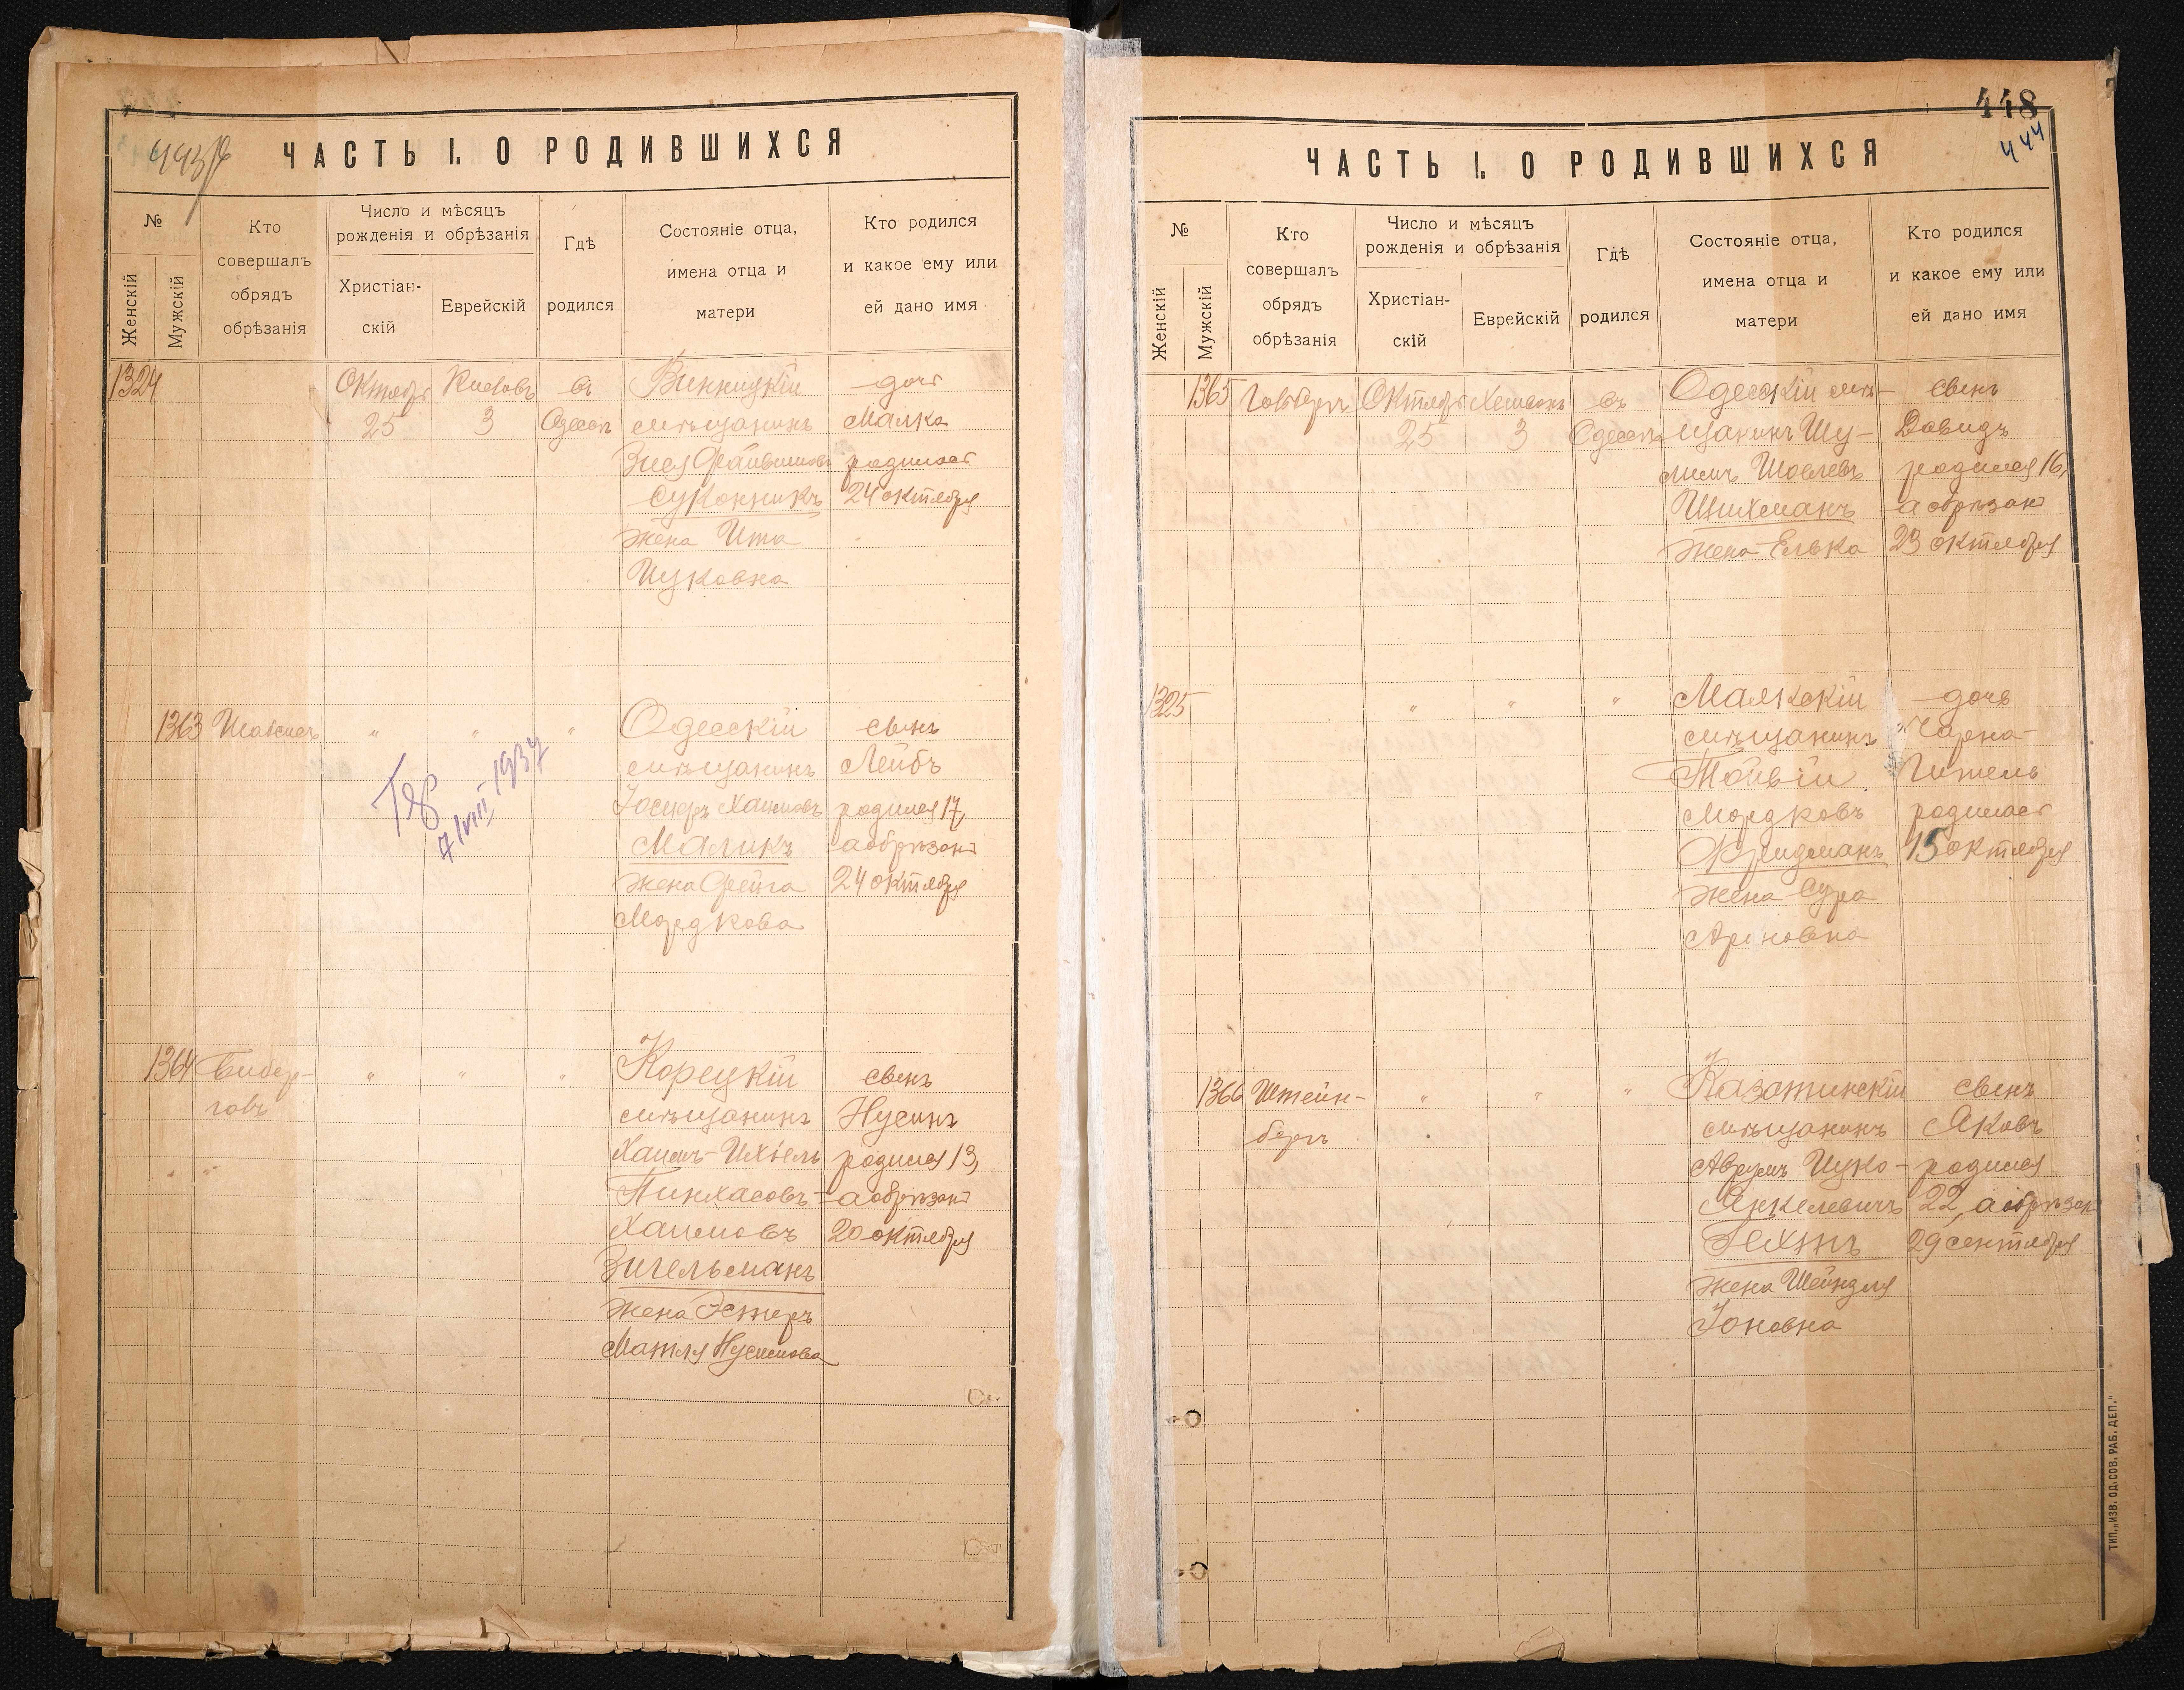 443
ЧАСТЬ I. О РОДИВШИХСЯ
№
Женскій
Мужскій
Кто
совершалъ
обрядъ
обрѣзанія
Число и мѣсяцъ
рожденія и обрѣзанія
Христіан-
скій
Еврейскій
Гдѣ
родился
Состояніе отца,
имена отца и
матери
Кто родился
и какое ему или
ей дано имя
1324
Октябрь
25
3
въ
Одессѣ
Винницкій
мѣщанинъ
Зися
Суконникъ
жена Ита
Ицковна
дочь
Малка
родилась
24 октября
1363
"
"
"
Одесскій
мѣщанинъ
Іосифъ Хаимовъ
Маликъ
жена Фейга
Мордкова
сынъ
Лейбъ
родился 17,
а обрѣзанъ
24 октября
7/VIII 1937
1364
Бибер-
говъ
"
"
"
Корецкій
мѣщанинъ
Хаимъ-Ихіель
Пинхасовъ-
Хаимовъ
Зигельманъ
жена Эстеръ
Матля Нусимова
сынъ
Нусинъ
родился 13,
а обрѣзанъ
20 октября
448
444
ЧАСТЬ I. О РОДИВШИХСЯ
№
Женскій
Мужскій
Кто
совершалъ
обрядъ
обрѣзанія
Число и мѣсяцъ
рожденія и обрѣзанія
Христіан-
скій
Еврейскій
Гдѣ
родился
Состояніе отца,
имена отца и
матери
Кто родился
и какое ему или
ей дано имя
1365
Октябрь
25
3
въ
Одессѣ
Одесскій мѣ-
щанинъ Шу-
лимъ Шоелевъ
Шихманъ
жена Елька
сынъ
Давидъ
родился 16,
а обрѣзанъ
23 октября
1325
"
"
"
Маякскій
мѣщанинъ
Тойвій
Мордковъ
Фридманъ
жена Сура
Ароновна
дочь
Чарна-
Гитель
родилась
15 октября
1366
Штейн-
бергъ
"
"
"
Казатинскій
мѣщанинъ
Аврумъ Ицко-
Янкелевичъ
Гехтъ
жена Шейндля
Іоновна
сынъ
Яковъ
родился
22, а обрѣзанъ
29 сентября
ТИП. „ИЗВ. ОД. СОВ. РАБ. ДЕП."